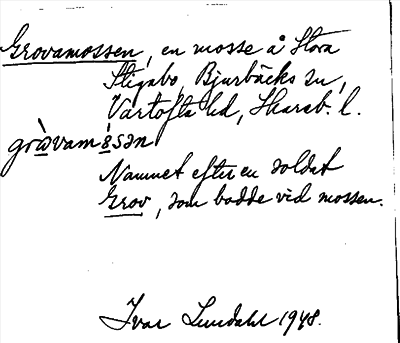 Grovamossen, en mosse å Stora
Stigabo, Bjurbäcks sn,
Vartofta hd, Skarab. l.
gròvamósən
Namnet efter en soldat
Grov, som bodde vid mossen.
Ivar Lundahl 1948.